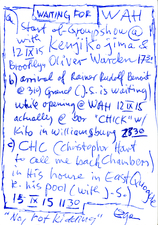 WAITING FOR WAH
a) Start of Group show @
with Kenji Kojima &
12 IX 15
Brooklyn Oliver Warden 1730
b) arrival of Rainer Rudolf Benoit
@ 319 Grand (J.S. is waiting
while opening @ WAH 12 IX 15
actually @ bar "CHICK" w/
Kito in Williamsburg 2830
c) CHC (Christopher Hart
Chambers)
to call me back
in His house in East Quogue
& his pool (with J.S.)
15 IX 15 1130
"No, not kidding"